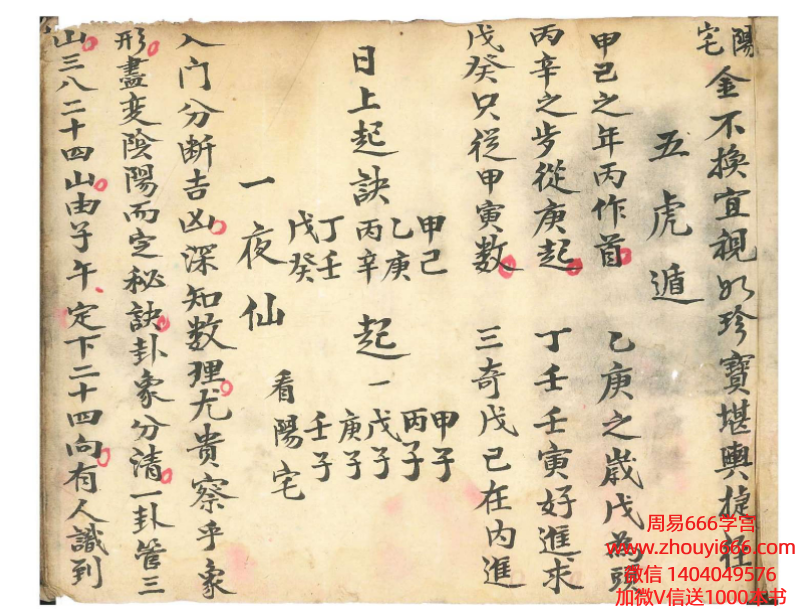 陽宅金不換宜視如珍寶堪輿捷徑
五虎遁
甲己之年丙作首 乙庚之歲戊為頭
丙辛之步從庚起 丁壬壬寅好進求
戊癸只從甲寅數 三奇戊己在内進
日上起訣 甲己 乙庚 丙辛 丁壬 戊癸 起 甲子 丙子 戊子 庚子 壬子
一夜仙 看陽宅
入门分断吉凶深知数理尤贵察乎象
形盡变陰陽而定秘訣卦象分清一卦管三
山三八二十四山由子午定下二十四向有人識到
周易666学宫
www.zhouyi666.com
微信 1404049576
加微V信送1000本书